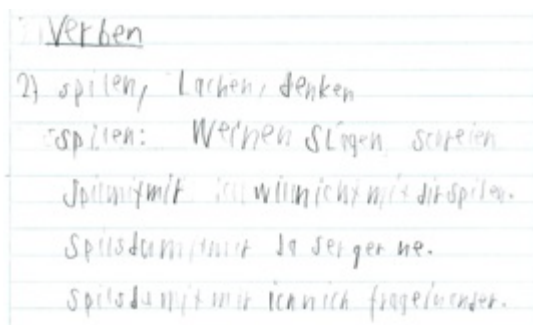 Verben
2) spilen, Lachen, denken
spilen: Weinen Slagen schreien
Spilmitmir ich willnichtmit dirspilen.
Spilsdumitmir Ja ser ger ne.
Spilsdumitmir ichnich